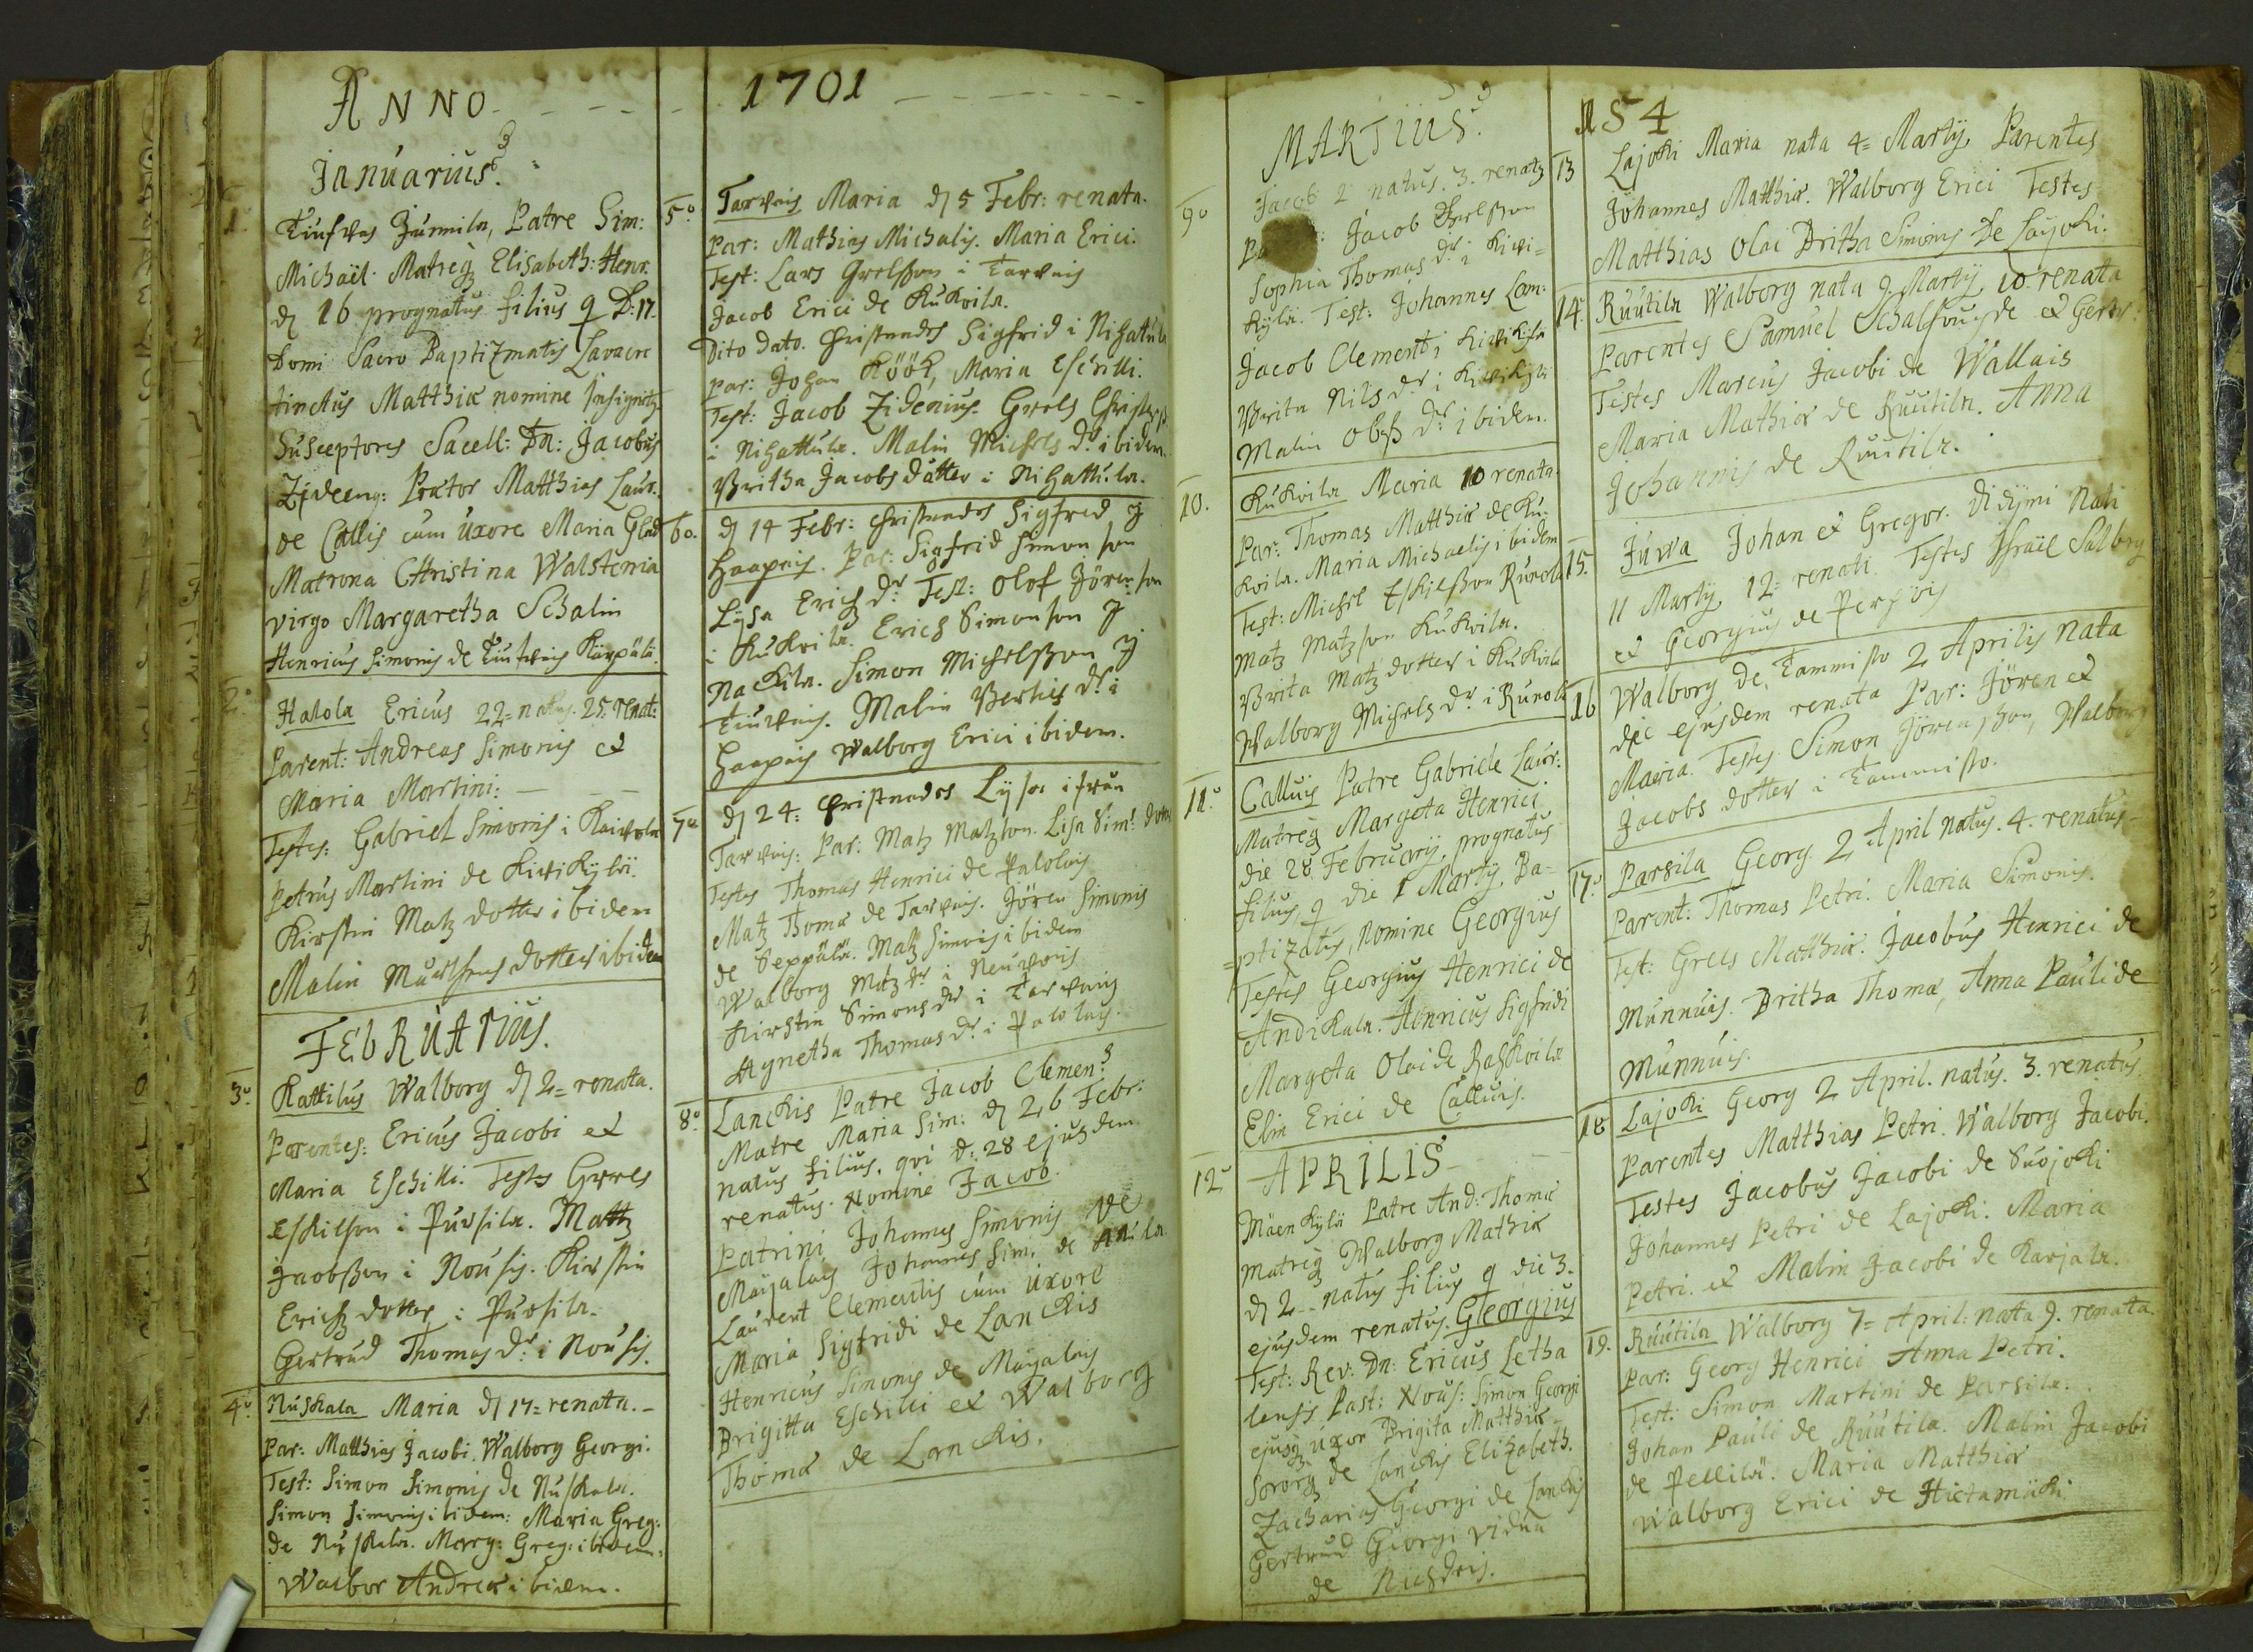 ANNO
Januarius.
1.o
Tiufvas Jumila, Patre Sim:
Michaël. Matreq Elisabeth: Henr.
d 16 prognatus filius q D: 17.
Domi Sacro Baptizmatis Lavacre
tinctus Matthiæ nomine
Susceptores Sacell: Dn: Jacobus
Prætor Matthias Laur.
de Callis cum uxore Maria
Matrona Christina Walstenia
virgo Margaretha Schalin
Henricus Simonis de
2.o
Halola Ericus 22= natus. 25: renat:
Parent: Andreas Simonis et
Maria Martini:
Testes: Gabriel Simonis i Kaivola
Petrus Martini de Kivikylä.
Kirstin Matz dotter ibidem
Malin dotter ibidem
FEBRUARIUS.
3.o
Kattilus Walborg d 2= renata.
Parentes: Ericus Jacobi et
Maria Eschilli. Testes Grels
Eskilson i Pursila. Mattz
Jacobsson i Nousis. Kirstin
Erichz dotter i Pursila.
Gertrud Thomas dr i Nousis.
4.o
Nuskala Maria d 17= renata.
Par: Matthias Jacobi. Walborg Georgi.
Test: Simon Simonis de Nuskala.
Simon Simonis ibidem: Maria Greg:
de Nuskala. Marg: Greg: ibidem.
Walbor Andreæ ibidem.
1701
5.o
Tarvais Maria d 5 Febr: renata.
Par: Mathias Michalis. Maria Erici.
Test: Lars Grelsson i Tarvais
Jacob Erici de Kukoila.
Dito dato. Christnades Sigfrid i Nihatula
Par: Johan Köök, Maria Eschilli.
Test: Jacob Zidenius. Grels
i Nihattula. Malin Michels dr ibidem.
Britha Jacobs dotter i Nihattula.
6o.
d 14 Febr: Christnades Sigfred J
Haapais. Par: Sigfrid Simonson
Lysa Erichz dr: Test: Olof Jörenson
i Kukoila. Erich Simonson J
Nackila. Simon Michelsson J
Malin Bertils dr i
Haapais Walborg Erici ibidem.
7.o
d 24= Christnades Lysa ifrån
Tarvais: Par: Matz Matzson. Lisa Sim: dotter
Testes Thomas Henrici de Palolais
Matz Thomæ de Tarvais. Jören Simonis
de Seppälä. Matz Simonis ibidem
Walborg Matz dr i
Kirstin Simons dr i Tarvais
Agnetha Thomas dr i Palolais.
8.o
Lanckis Patre Jacob Clemen:
Matre Maria Sim: d 26 Febr:
natus filius, qvi d: 28 ejusdem
renatus. Nomine Jacob.
Patrini Johannes Simonis de
Maijalais Johannes Sim: de
Laurent Clementis cum uxore
Maria Sigfridi de Lanckis
Henricus Simonis de Maijalais
Brigitta Eschilli et Walborg
Thomæ de Lanckis.
MARTIUS.
9o
Jacob 2 natus. 3. renatq
Jacob
Sophia Thomas dr i Kivi=
kylä. Test: Johannes Lam.
Jacob Clement i Kivikylä
Brita Nils dr i Kivikylä
Malin Olofs dr ibidem.
10.
Kukoila Maria 10 renata.
Par: Thomas Matthiæ de Ku-
koila. Maria Michaelis ibidem
Test: Michel Eskilsson Runola
Matz Matzson Kukoila.
Brita Matz dotter i Kukoila
Walborg Michels dr i Runola
11.o
Calluis Patre Gabriele Laur:
Matreq Margeta Henrici
die 28 Februarij, prognatus
filius, q die 1 Martij Ba=
=ptizatus, Nomine Georgius
Testes Georgius Henrici de
Andikala. Henricus Sigfridi
Margeta Olai de Raskoila
Elin Erici de Calluis.
12.o
APRILIS
Mäenkylä Patre And: Thomæ
Matreq Walborg Mathiæ
d 2 natus filius q die 3.
ejusdem renatus. Georgius
Test: Rev: Dn: Ericus Letha
lensis Past: Nous: Simon Georgi
ejusq uxor Brigita Matthiæ
Sororq de Lanckis Elizabeth.
Zacharias Georgi de Lanckis
Gertrud Georgi vidua
de
154
13
Lajoki Maria nata 4= Martij Parentes
Johannes Matthiæ. Walborg Erici Testes
Matthias Olai Britha Simonis de Lajoki.
14.
Ruutila Walborg nata 9. Martij 10 renata
Parentes Samuel et
Testes Marcus Jacobi de Wallais
Maria Mathiæ de Ruutila. Anna
Johannis de Ruutila.
15.
Juva Johan et Gregor. Didijmi Nati
11 Martij 12= renati. Testes Israel Salberg
et Georgius de
16
Walborg de Tammisto 2 Aprilis Nata
die ejusdem renata Par: Jören et
Maria. Testes Simon Jörensson, Walborg
Jacobs dotter i Tammisto.
17.o
Parsila Georg 2 April natus. 4. renatus
Parent: Thomas Petri. Maria Simonis.
Test: Grels Matthiæ. Jacobus Henrici de
Munnuis. Britha Thomæ, Anna Pauli de
Munnuis.
18
Lajoki Georg 2 April. natus. 3. renatus.
Parentes Matthias Petri. Walborg Jacobi.
Testes Jacobus Jacobi de Suojoki
Johannes Petri de Lajoki. Maria
Petri. et Malin Jacobi de Karjala.
19.
Ruutila Walborg 7= April: nata 9. renata.
Par: Georg Henrici Anna Petri.
Test: Simon Martini de Parsila.
Johan Pauli de Ruutila. Malin Jacobi
de Pellilä. Maria Matthiæ
Walborg Erici de Hietamäki.